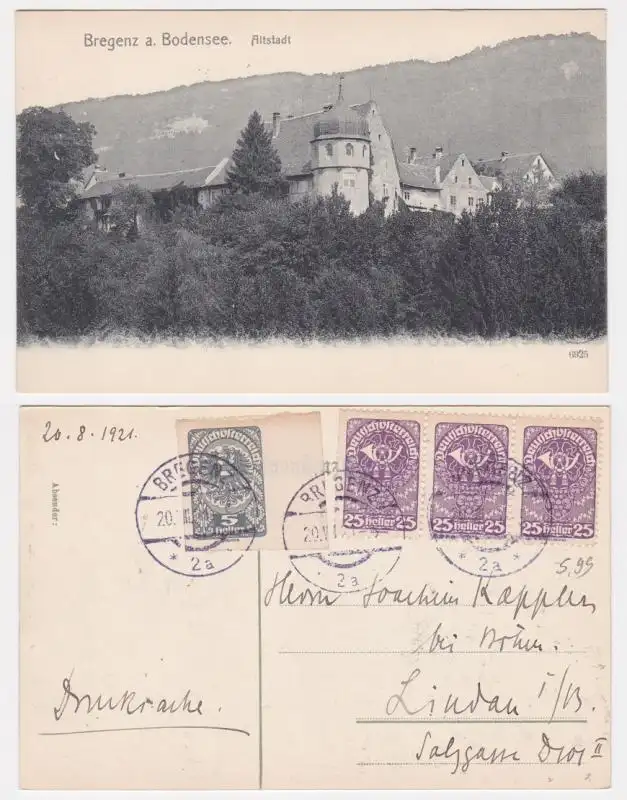 Bregenz a. Bodensee. Altstadt
6925
20.8.1921.
Absender:
Deutschösterreich
5
Heller
Deutschösterreich
25 Heller 25
Deutschösterreich
25 Heller 25
Deutschösterreich
25 Heller 25
BREGENZ
20.
* 2a *
BREGENZ
20.
2a
* 2a *
5,99
Herrn Joachim Kæppler
bei Böhm.
Lindau i/B.
Salzgasse
Drucksache.